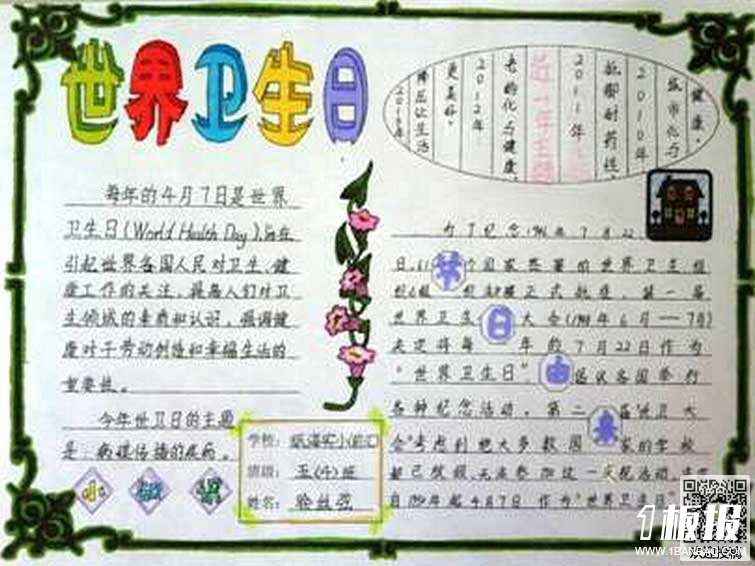 世界卫生日
每年的4月7日是世界
卫生日(World Health Day),旨在
引起世界各国人民对卫生、健
康工作的关注,提高人们对卫
生领域的素质和认识,强调健
康对于劳动创造和幸福生活的
重要性。
今年世卫日的主题
是:病媒传播的疾病。
小知识
近一年主题
健康。
2010年
城市化与
2011年
抵御耐药性。
2012年
老龄化与健康。
更美好。
2013年
降压让生活
为了纪念1946年7月22
日,61个国家签署的世界卫生组
正式批准,第一届
世界卫生大会(1948年6月—7月)
决定将每年的7月22日作为
"世界卫生日",
各种纪念活动。第二届世卫大
会考虑到绝大多数国家的学校
都已放假,无法参加这一庆祝活动,
自1950年起4月7日作为"世界卫生日"
日由来
学校:
班级:五(4)班
姓名:
1板报
WWW.1BANBAO.COM